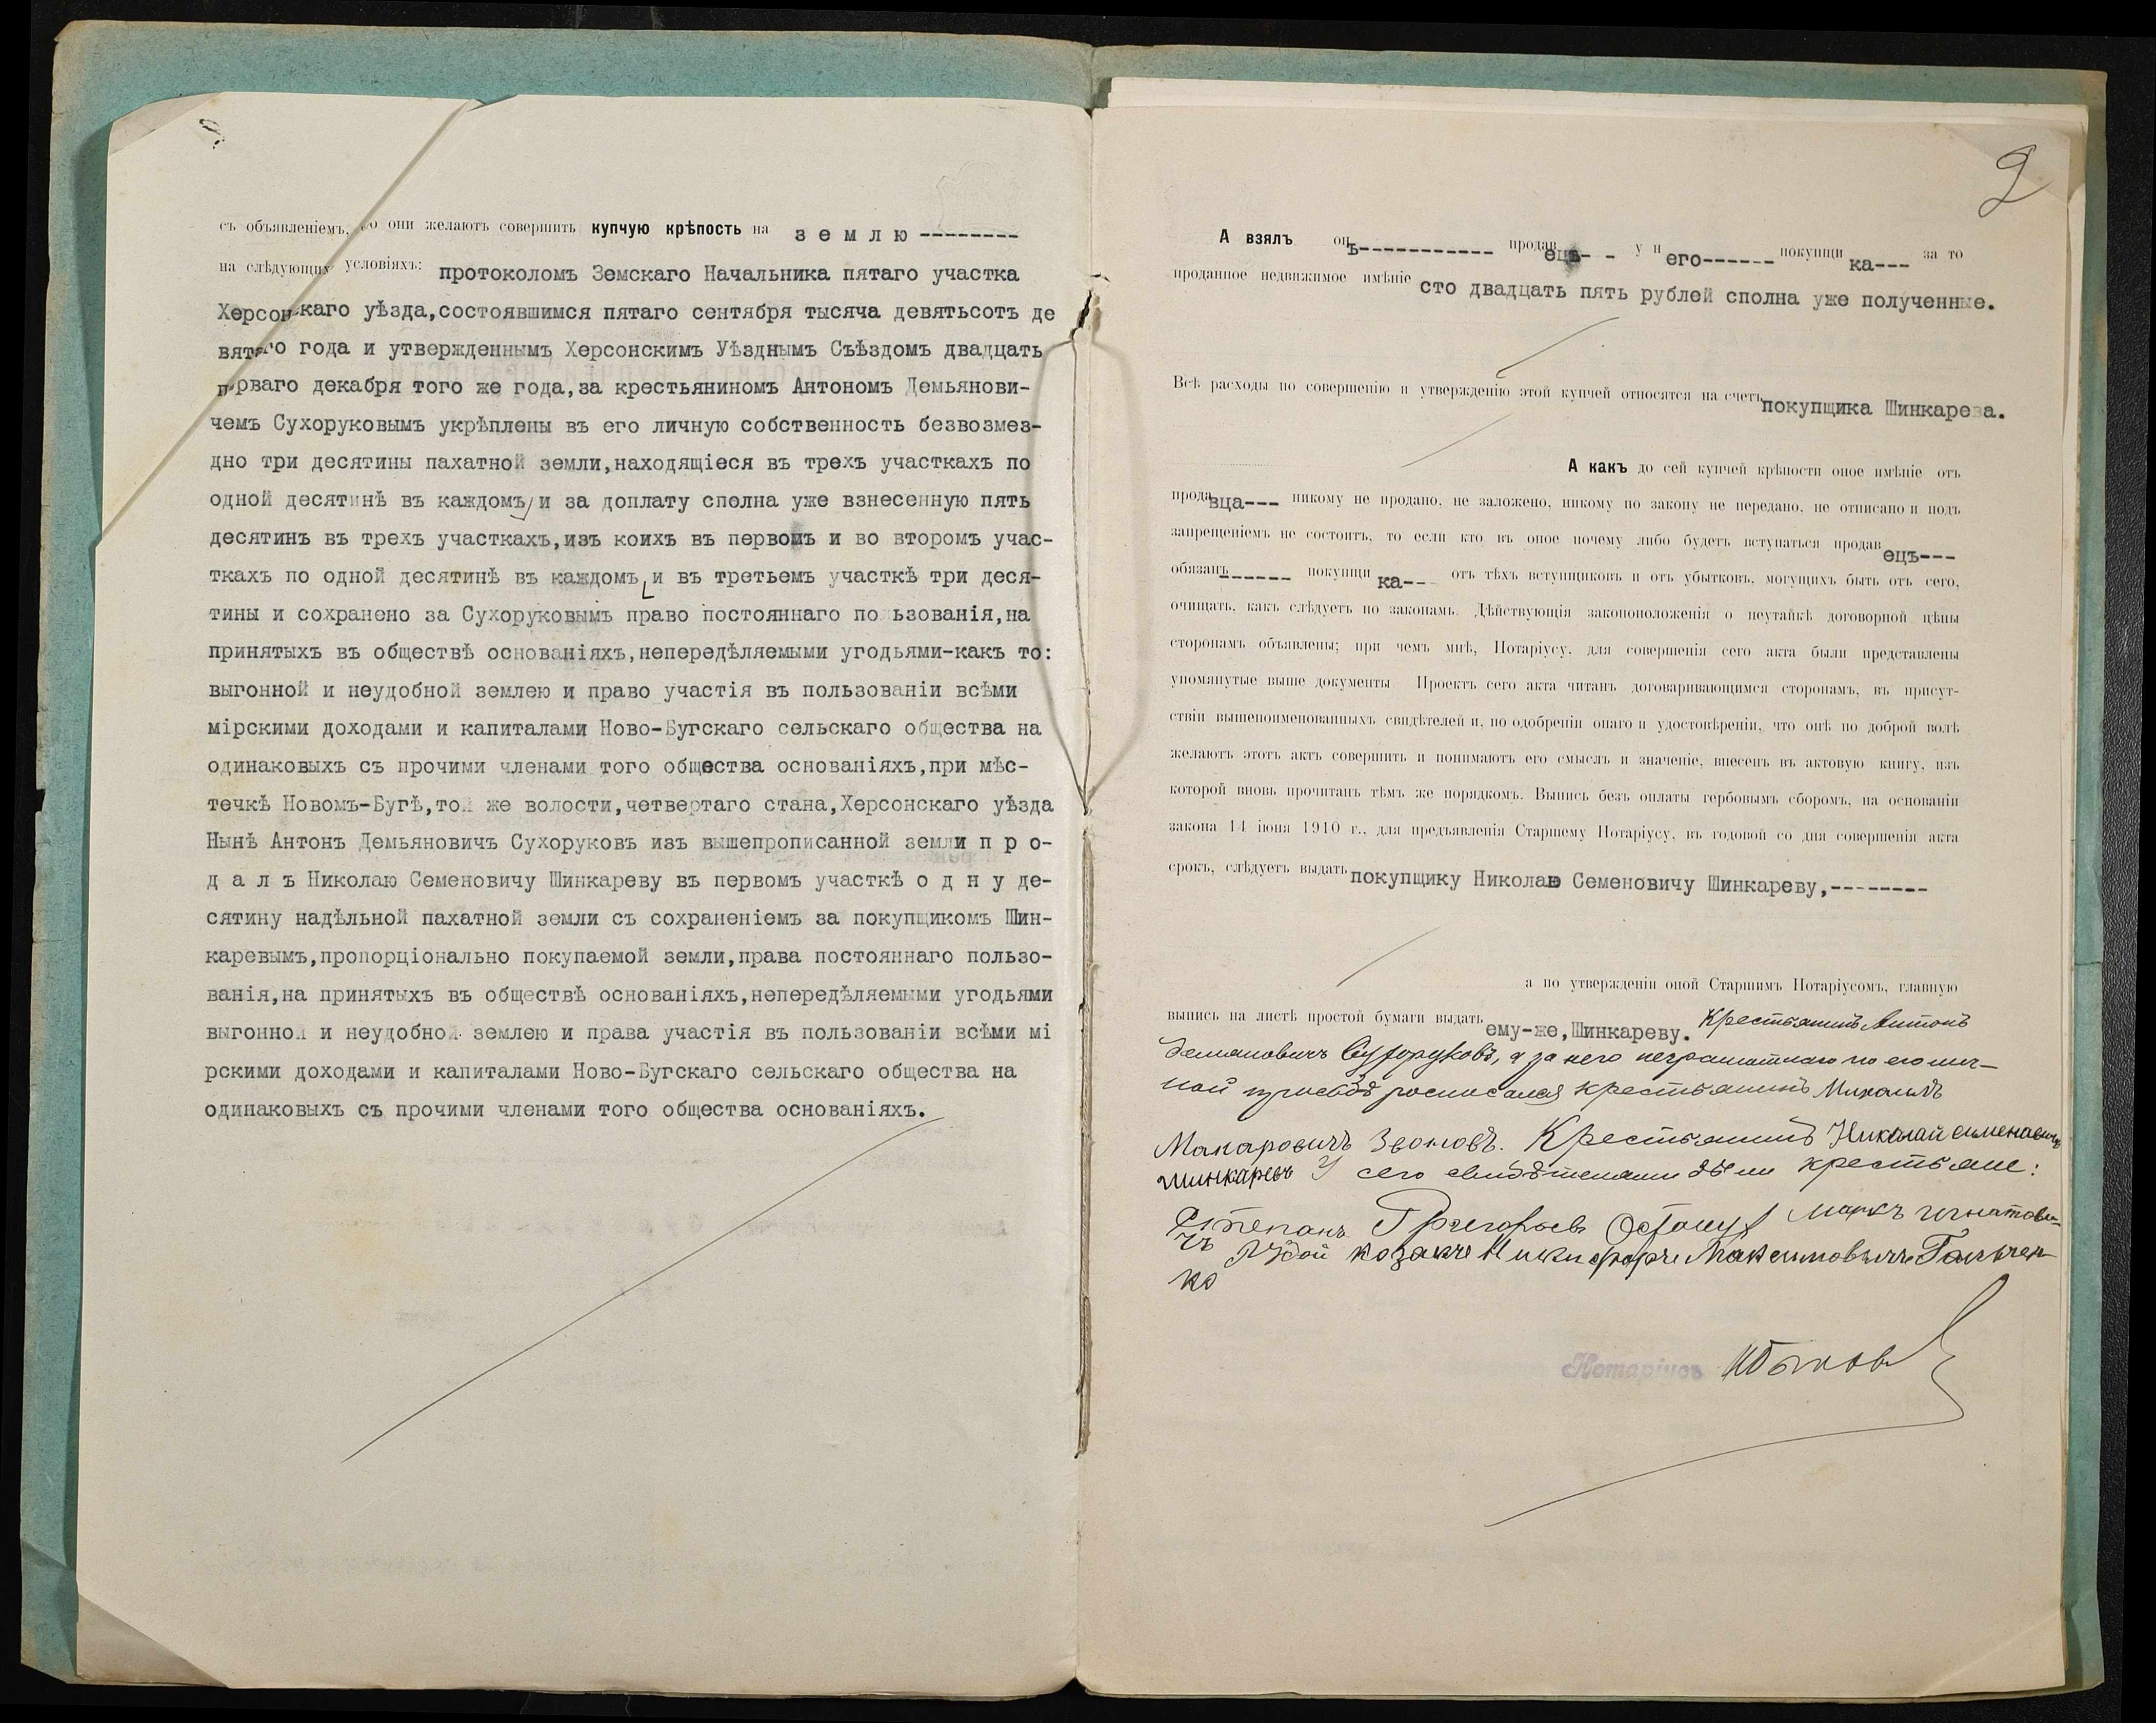 съ объявленіемъ, что они желаютъ совершить купчую крѣпость на з е м л ю --------
на слѣдующихъ условіяхъ: протоколомъ Земскаго Начальника пятаго участка
Херсонскаго уѣзда,состоявшимся пятаго сентября тысяча девятьсотъ де
вятаго года и утвержденнымъ Херсонскимъ Уѣзднымъ Съѣздомъ двадцать
перваго декабря того же года,за крестьяниномъ Антономъ Демьянови-
чемъ Сухоруковымъ укрѣплены въ его личную собственность безвозмез-
дно три десятины пахатной земли,находящіеся въ трехъ участкахъ по
одной десятинѣ въ каждомъ, и за доплату сполна уже взнесенную пять
десятинъ въ трехъ участкахъ,изъ коихъ въ первомъ и во второмъ учас-
ткахъ по одной десятинѣ въ каждомъ, и въ третьемъ участкѣ три деся-
тины и сохранено за Сухоруковымъ право постояннаго пользованія,на
принятыхъ въ обществѣ основаніяхъ,непередѣляемыми угодьями-какъ то:
выгонной и неудобной землею и право участія въ пользованіи всѣми
мірскими доходами и капиталами Ново-Бугскаго сельскаго общества на
одинаковыхъ съ прочими членами того общества основаніяхъ,при мѣс-
течкѣ Новомъ-Бугѣ,той же волости,четвертаго стана,Херсонскаго уѣзда
Нынѣ Антонъ Демьяновичъ Сухоруковъ изъ вышепрописанной земли п р о-
д а л ъ Николаю Семеновичу Шинкареву въ первомъ участкѣ о д н у де-
сятину надѣльной пахатной земли съ сохраненіемъ за покупщикомъ Шин-
каревымъ,пропорціонально покупаемой земли,права постояннаго пользо-
ванія,на принятыхъ въ обществѣ основаніяхъ,непередѣляемыми угодьями
выгонной и неудобной землею и права участія въ пользованіи всѣми мі
рскими доходами и капиталами Ново-Бугскаго сельскаго общества на
одинаковыхъ съ прочими членами того общества основаніяхъ.
2
А взялъ онъ----------- продавецъ-- у него------ покупщика--- за то
проданное недвижимое имѣніе сто двадцать пять рублей сполна уже полученные.
Всѣ расходы по совершенію и утвержденію этой купчей относятся на счетъ покупщика Шинкарева.
А какъ до сей купчей крѣпости оное имѣніе отъ
продавца--- никому не продано, не заложено, никому по закону не передано, не отписано и подъ
запрещеніемъ не состоитъ, то если кто въ оное почему либо будетъ вступаться продавецъ---
обязанъ------ покупщика--- отъ тѣхъ вступщиковъ и отъ убытковъ, могущихъ быть отъ сего,
очищать, какъ слѣдуетъ по законамъ. Дѣйствующія законоположенія о неутайкѣ договорной цѣны
сторонамъ объявлены; при чемъ мнѣ, Нотаріусу, для совершенія сего акта были представлены
упомянутые выше документы. Проектъ сего акта читанъ договаривающимся сторонамъ, въ присут-
ствіи вышепоименованныхъ свидѣтелей и, по одобреніи онаго и удостовѣреніи, что онѣ по доброй волѣ
желаютъ этотъ актъ совершить и понимаютъ его смыслъ и значеніе, внесенъ въ актовую книгу, изъ
которой вновь прочитанъ тѣмъ же порядкомъ. Выпись безъ оплаты гербовымъ сборомъ, на основаніи
закона 14 іюня 1910 г., для предъявленія Старшему Нотаріусу, въ годовой со дня совершенія акта
срокъ, слѣдуетъ выдать покупщику Николаю Семеновичу Шинкареву,--------
а по утвержденіи оной Старшимъ Нотаріусомъ, главную
выпись на листѣ простой бумаги выдать ему-же,Шинкареву. Крестьянинъ Антонъ
Демяновичъ Сухоруковъ, а за него неграмотнаго по его лич-
ной просьбѣ росписался крестьянинъ Михаилъ
Макаровичъ Звоновъ. Крестьянинъ Николай Сименавичъ
Шинкаревъ У сего свидѣтелями были крестьяне:
Степанъ Григорьевъ Маркъ Игнатови-
чъ козакъ Никифоръ Максимовичъ Гальчен-
ко
Нотаріусъ